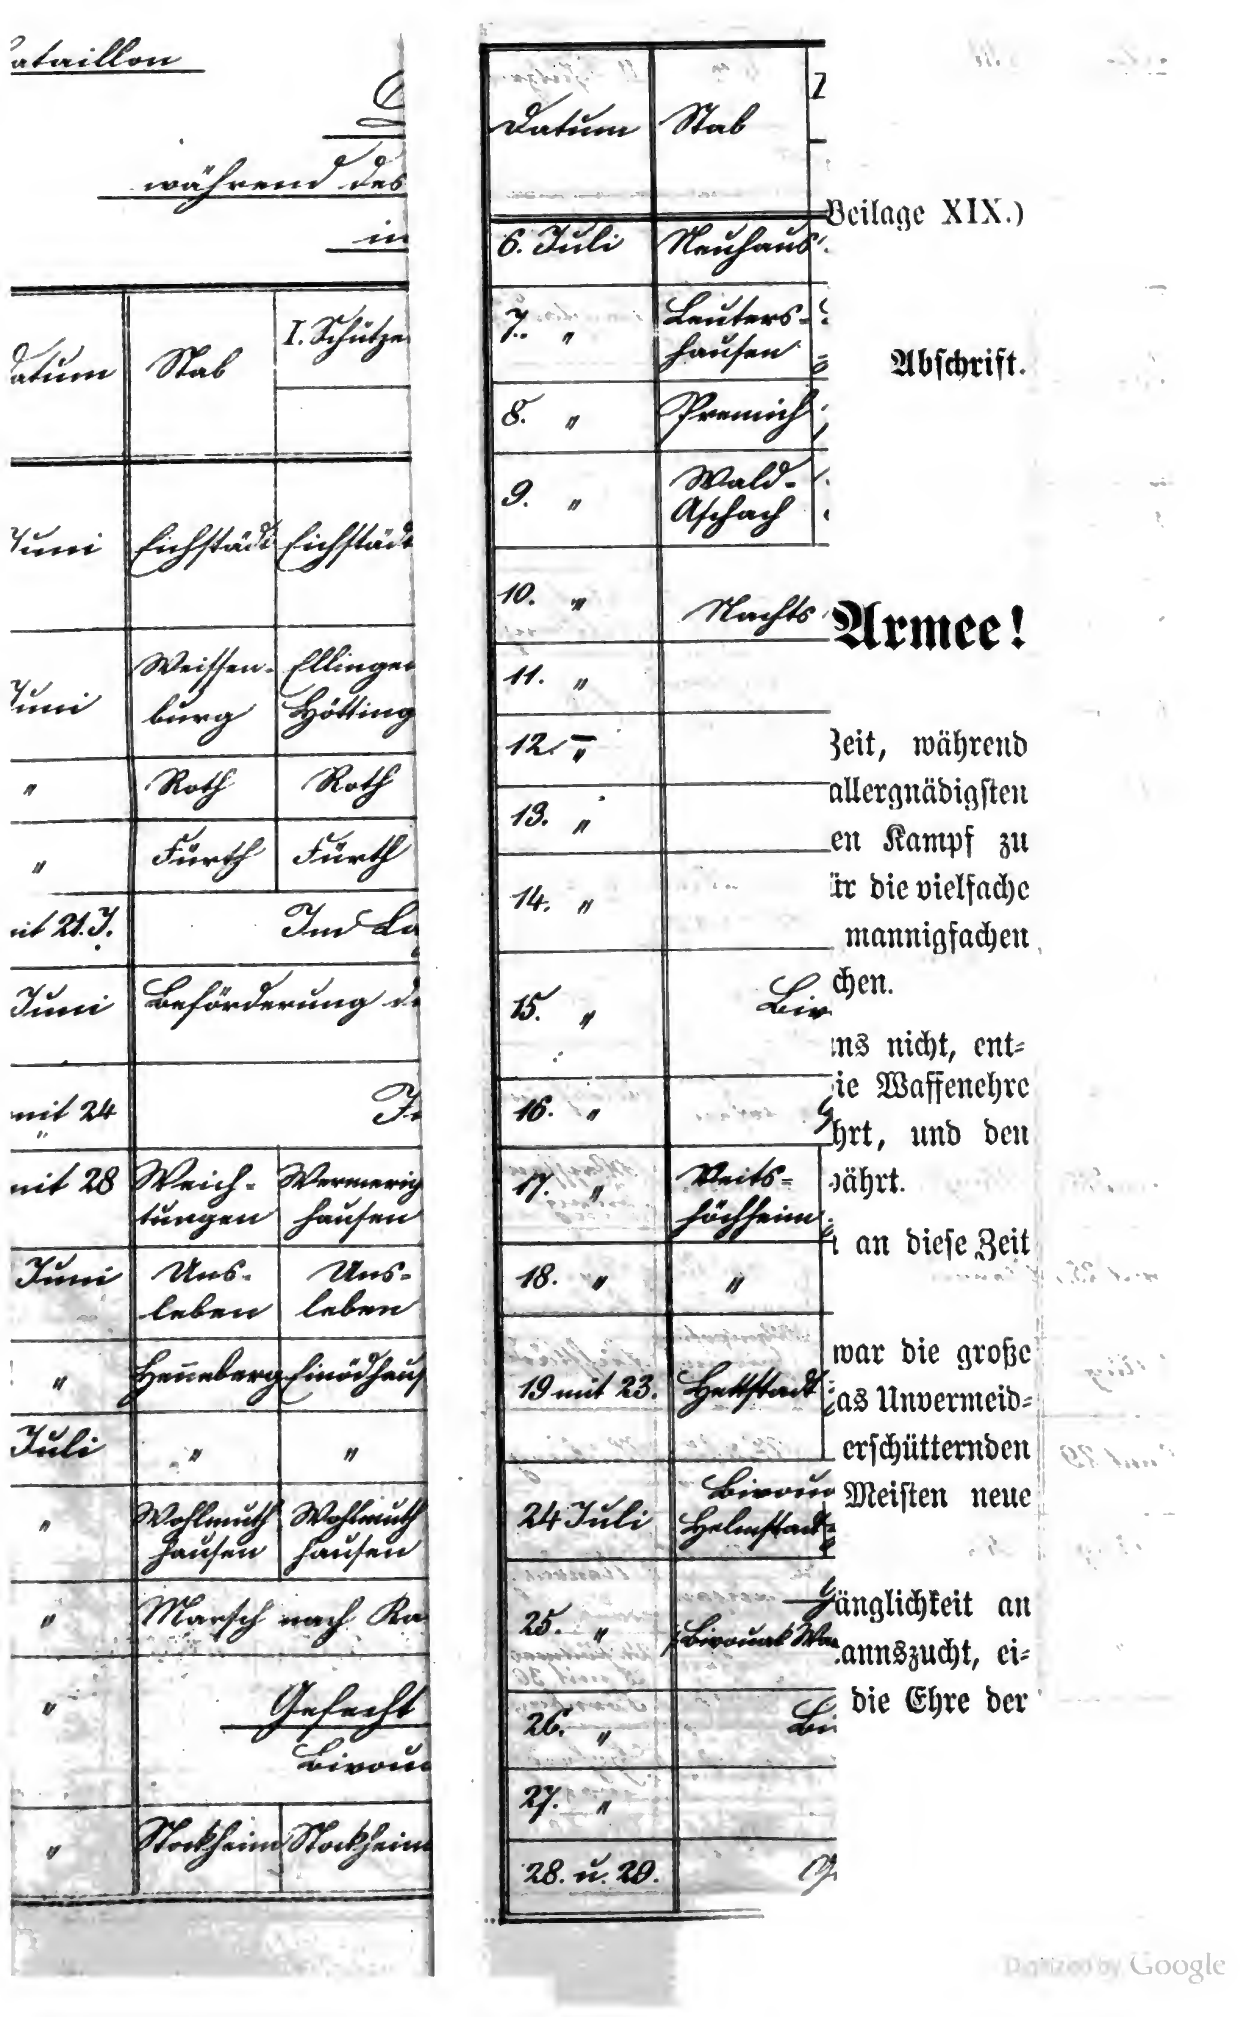 ataillon
während des
in
atum Stab I. Schütze
Juni Eichstädt Eichstädt
Juni Weissen- Ellingen
burg Hötting
" Roth Roth
" Fürth Fürth
mit 21. J. Im La
Juni Beförderung de
mit 24
"
mit 28 Weich- Wermerich
tungen hausen
Juni Uns- Uns-
leben leben
" Henneberg Einödhaus
Juli " "
" Wohlmuth Wohlmuth
hausen hausen
" Marsch nach Ka
" Gefecht
Bivou
" Stockheim Stockheim
Datum Stab
6. Juli Neuhaus
7. " Leuters-
hausen
8. " Premich
9. " Wald-
Aschach
10. " Nachts
11. "
12. "
13. "
14. "
15. " Biv
16. "
17. " Veits-
höchheim
18. " "
19 mit 23. Hettstadt
24 Juli Bivou
Helmstadt
25. "
Bivouak Wa
26. " Bi
27. "
28. u. 29.
Beilage XIX.)
Abschrift.
Armee!
Zeit, während
allergnädigsten
en Kampf zu
ür die vielfache
mannigfachen
chen.
uns nicht, ent-
ie Waffenehre
hrt, und den
währt.
an diese Zeit
war die große
as Unvermeid-
erschütternden
Meisten neue
gänglichkeit an
annszucht, ei-
die Ehre der
Digitized by Google